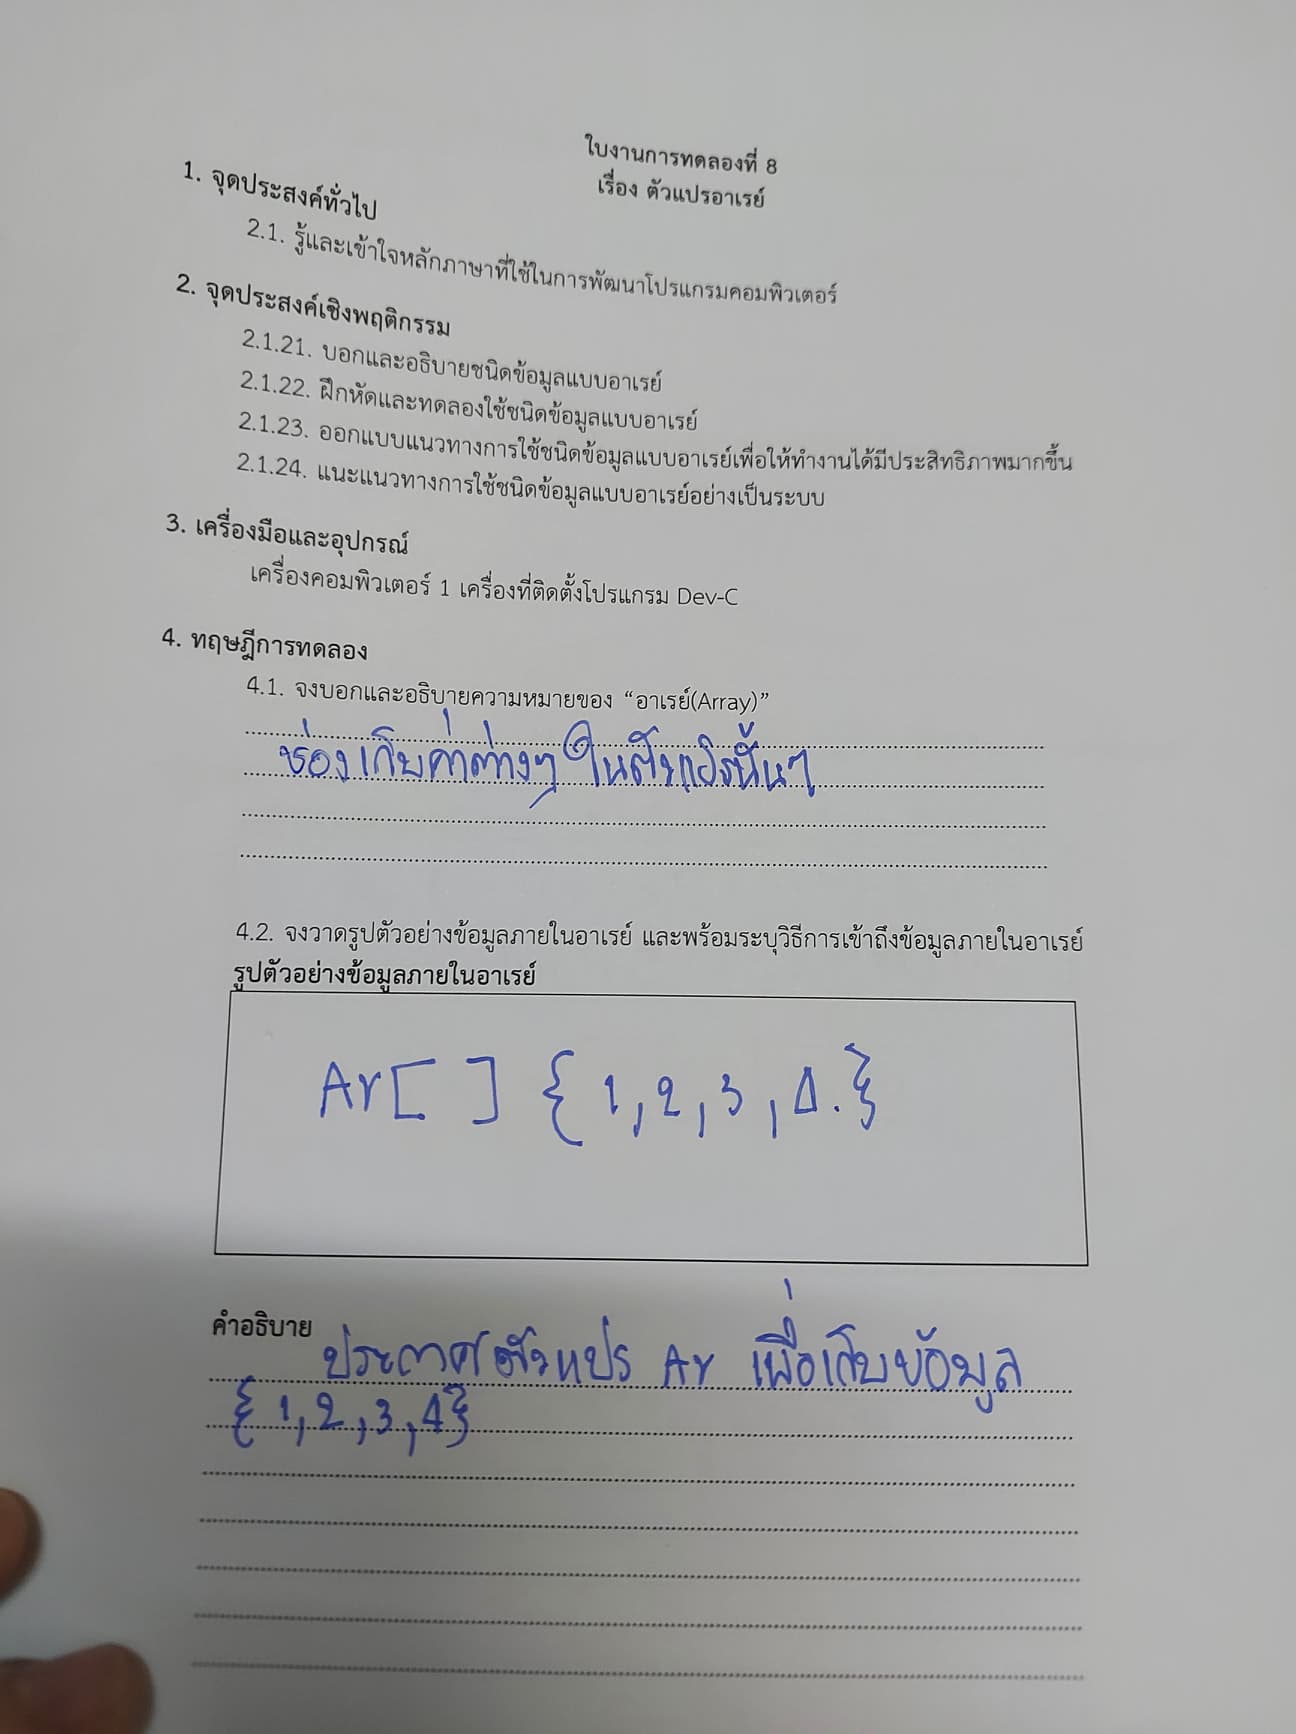 ใบงานการทดลองที่ 8
เรื่อง ตัวแปรอาเรย์
1. จุดประสงค์ทั่วไป
2.1. รู้และเข้าใจหลักภาษาที่ใช้ในการพัฒนาโปรแกรมคอมพิวเตอร์
2. จุดประสงค์เชิงพฤติกรรม
2.1.21. บอกและอธิบายชนิดข้อมูลแบบอาเรย์
2.1.22. ฝึกหัดและทดลองใช้ชนิดข้อมูลแบบอาเรย์
2.1.23. ออกแบบแนวทางการใช้ชนิดข้อมูลแบบอาเรย์เพื่อให้ทำงานได้มีประสิทธิภาพมากขึ้น
2.1.24. แนะแนวทางการใช้ชนิดข้อมูลแบบอาเรย์อย่างเป็นระบบ
3. เครื่องมือและอุปกรณ์
เครื่องคอมพิวเตอร์ 1 เครื่องที่ติดตั้งโปรแกรม Dev-C
4. ทฤษฎีการทดลอง
4.1. จงบอกและอธิบายความหมายของ “อาเรย์(Array)”
ช่องเก็บค่าต่างๆ ในตัวแปรนั้นๆ
4.2. จงวาดรูปตัวอย่างข้อมูลภายในอาเรย์ และพร้อมระบุวิธีการเข้าถึงข้อมูลภายในอาเรย์
รูปตัวอย่างข้อมูลภายในอาเรย์
Ar[ ] {1,2,3,4.}
คำอธิบาย ประกาศตัวแปร Ar เพื่อเก็บข้อมูล
{1,2,3,4}